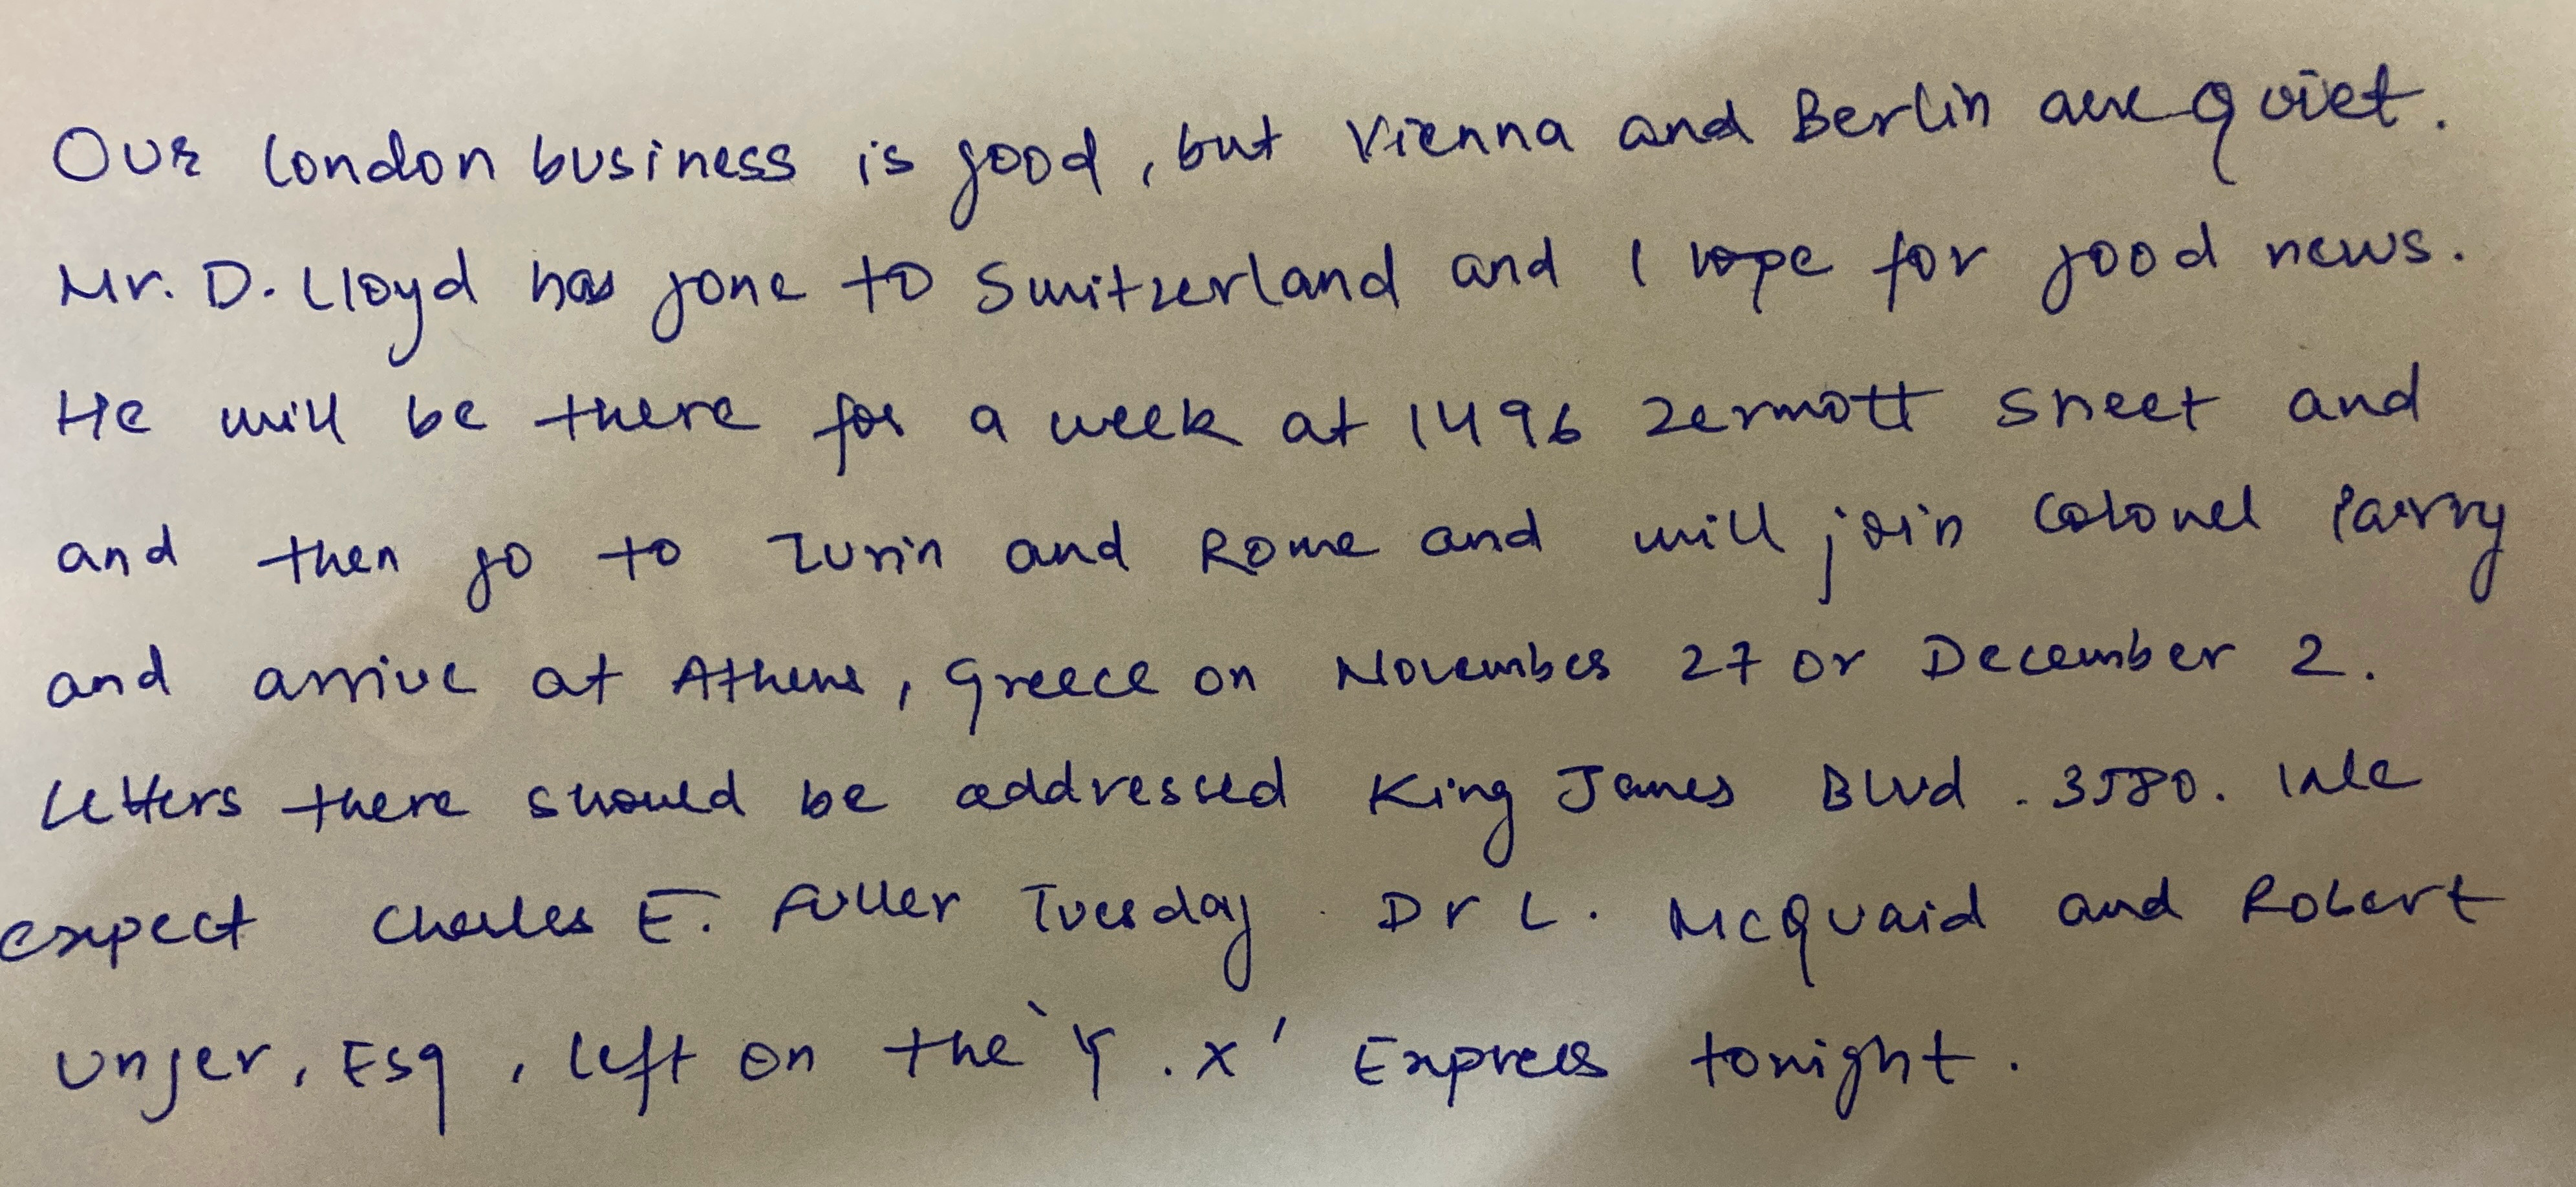 Our London business is good, but Vienna and Berlin are quiet.
Mr. D. Lloyd has gone to Switzerland and I hope for good news.
He will be there for a week at 1496 Zermott Street and
and then go to Turin and Rome and will join Colonel Parry
and arrive at Athens, Greece on November 27 or December 2.
Letters there should be addressed King James Blvd. 3580. We
expect Charles E. Fuller Tuesday. Dr L. McQuaid and Robert
Unger, Esq, left on the 'Y.X' Express tonight.